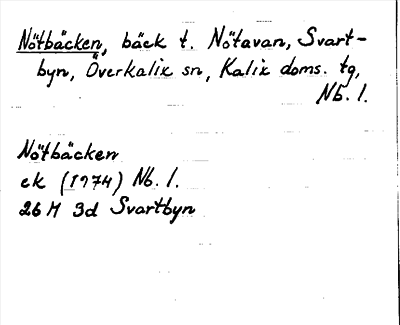 Nötbäcken, bäck t. Nötavan, Svart-
byn, Överkalix sn, Kalix doms. tg,
Nb. l.
Nötbäcken
ek (1974) Nb. l.
26 M 3d Svartbyn